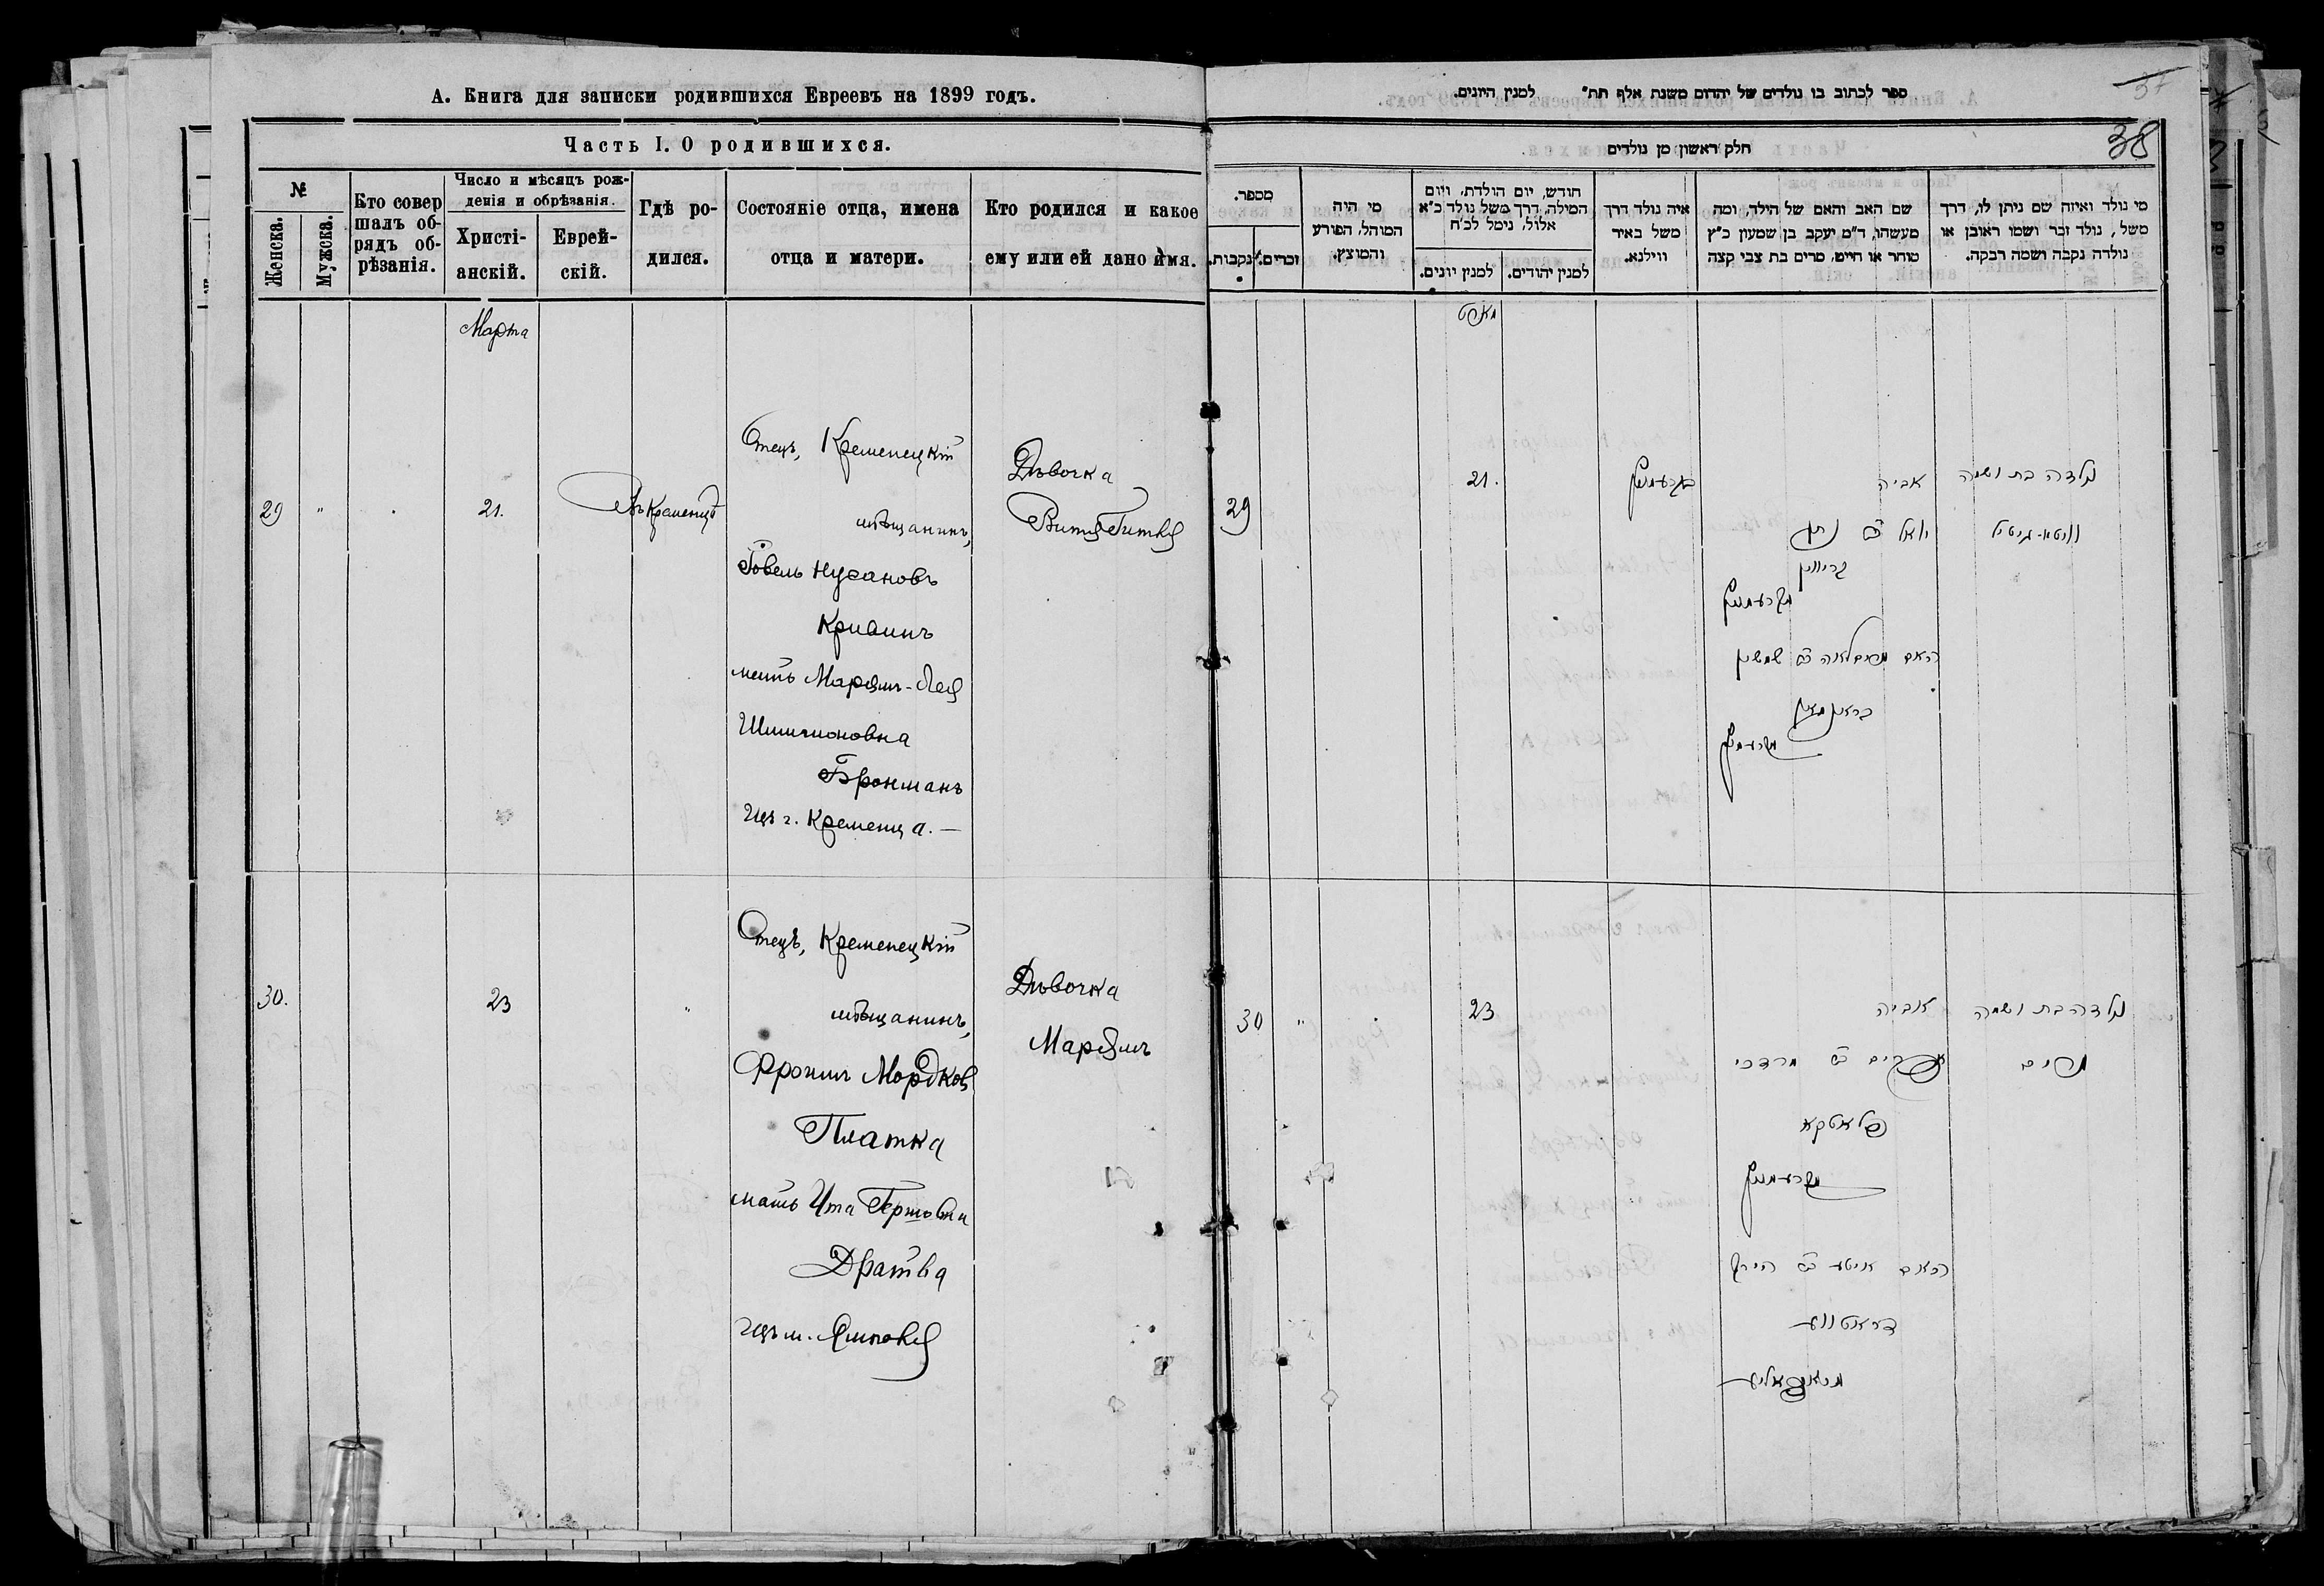 А. Книга для записки родившихся Евреевъ на 1899 годъ.
Часть I. О родившихся.
№
Женска.
Мужска.
Кто совер
шалъ об-
рядъ об-
рѣзанія.
Число и мѣсяцъ рож-
денія и обрѣзанія.
Христі-
анскій.
Еврей-
скій.
Гдѣ ро-
дился.
Состоянiе отца, имена
отца и матери.
Кто родился и какое
ему или ей дано имя.
Марта
29
"
21.
Въ Кременцѣ
Отецъ, Кременецкій
мѣщанинъ,
Іовель Нусановъ
Кривинъ
мать Марьямъ-Лея
Шимшоновна
Бронманъ
изъ г. Кременца. —
Дѣвочка
Витя Гитля
30.
23
"
Отецъ, Кременецкій
мѣщанинъ,
Фроимъ Мордков
Платка
мать Ита Гершовна
Дратва
изъ м.
Дѣвочка
Марьямъ
ספר לכתוב בו נולדים של יהדום משנת אלף תת״ למנין היונים.
37
38
חלק ראשון מן נולדים
מספר.
זכרים.
נקבות.
מי היה
המוהל, הפורע
והמוצץ.
חודש, יום הולדת, ויום
המילה, דרך משל נולד כ״א
אלול, נימל לכ״ח
למנין יהודים.
למנין יונים.
איה נולד דרך
משל באיר
ווילנא.
שם האב והאם של הילד, ומה
מעשהו, ד״מ יעקב בן שמעון כ״ץ
סוחר או חייט, מרים בת צבי קצה
מי נולד ואיזה שם ניתן לו, דרך
משל, נולד זכר ושמו ראובן או
נולדה נקבה ושמה רבקה.
מארט
29
21.
בקרעמניץ
אביה
יואל ב״ר נתן
קריווין
מקרעמניץ
האם מרים לאה ב״ר שמשון
בראנמאן
מקרעמניץ
נולדה בת ושמה
וויטא-גיטיל
30
"
23
אביה
אפרים ב״ר מרדכי
פלאטקא
מקרעמניץ
האם איטא ב״ר הירש
דראטווע
נולדה בת ושמה
מרים